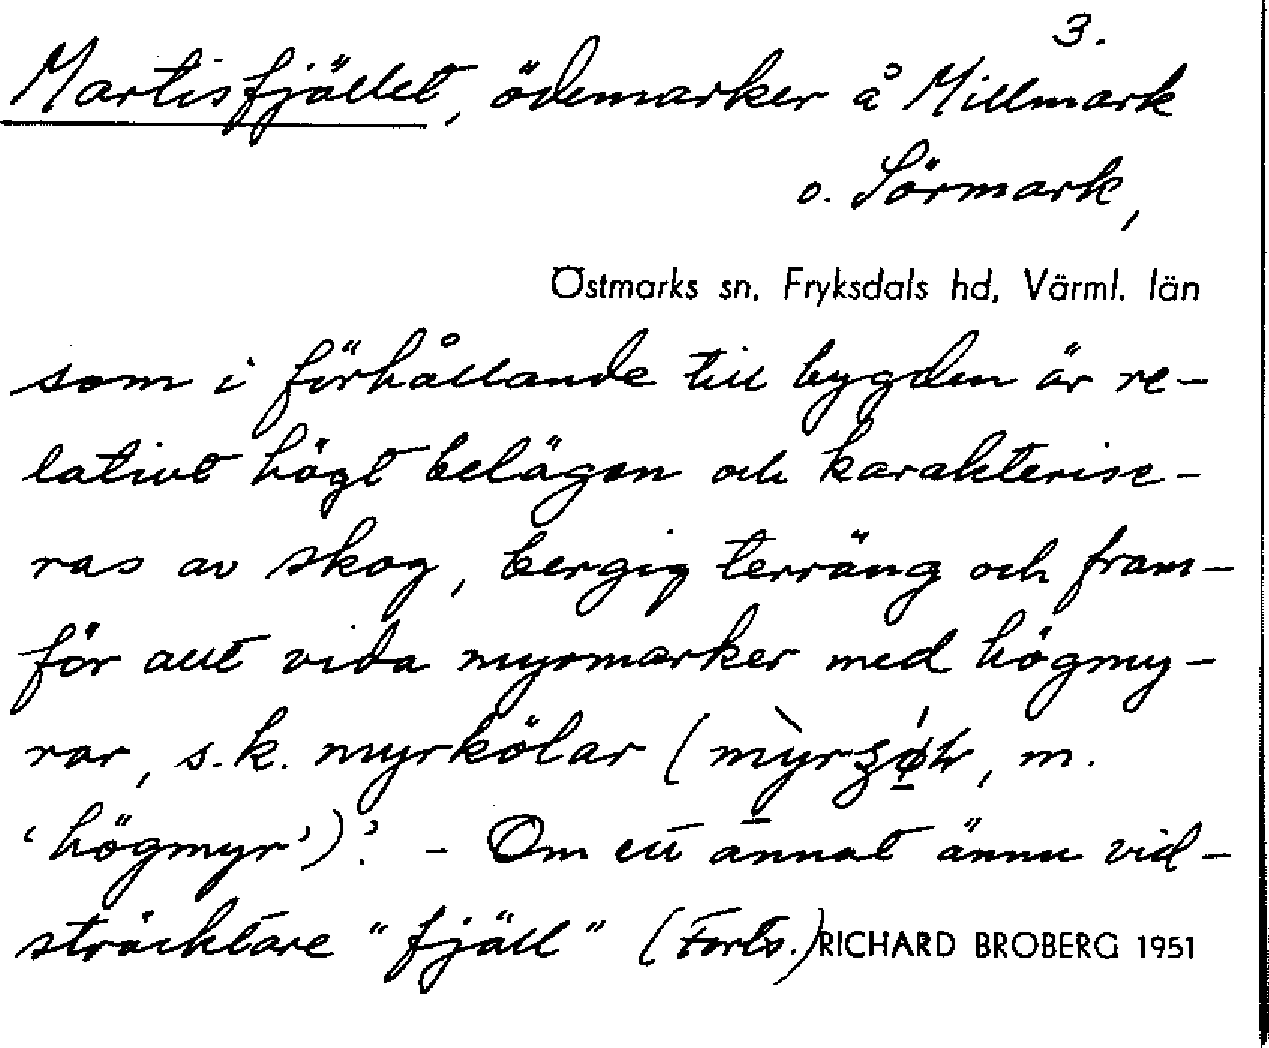 3.
Martisfjället, ödemarker å Millmark
o. Sörmark,
Östmarks sn, Fryksdals hd, Värml. län
som i förhållande till bygden är re-
lativt högt belägen och karakterise-
ras av skog, bergig terräng och fram-
för allt vida myrmarker med högmy-
rar, s.k. myrkölar (, m.
'högmyr')'. - Om ett annat ännu vid-
sträcktare "fjäll" (Forts.) RICHARD BROBERG 1951